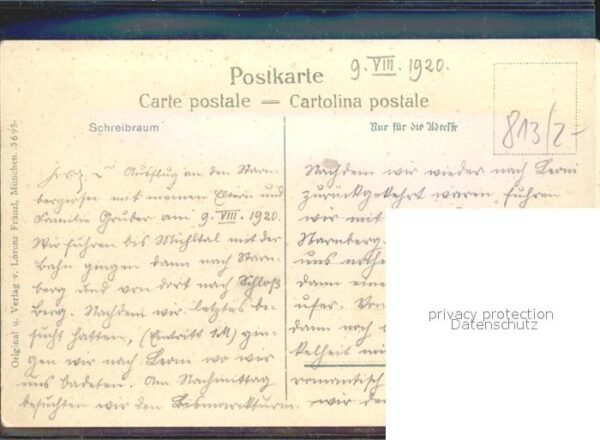 Postkarte
9. VIII. 1920.
Carte postale — Cartolina postale
Schreibraum
Nur für die Adresse
813/2-
Original u. Verlag v. Lorenz Fränzl, München. 5695.
Ausflug an den Starn-
bergersee mit meinen Eltern und
Familie Gruber am 9. VIII. 1920.
Wir fuhren bis Mühltal mit der
Bahn gingen dann nach Starn-
berg und von dort nach Schloß
Berg. Nachdem wir letztes be-
sucht hatten, (Eintritt 1M) gin-
gen wir nach Leoni wo wir
uns badeten. Am Nachmittag
besuchten wir den Bismarckturm.
Nachdem wir wieder nach Leoni
zurückgekehrt waren fuhren
wir mit
Starnberg.
uns
dann eine
ufer. Von
dann noch
kelheit
romantisch
wir
privacy protection
Datenschutz